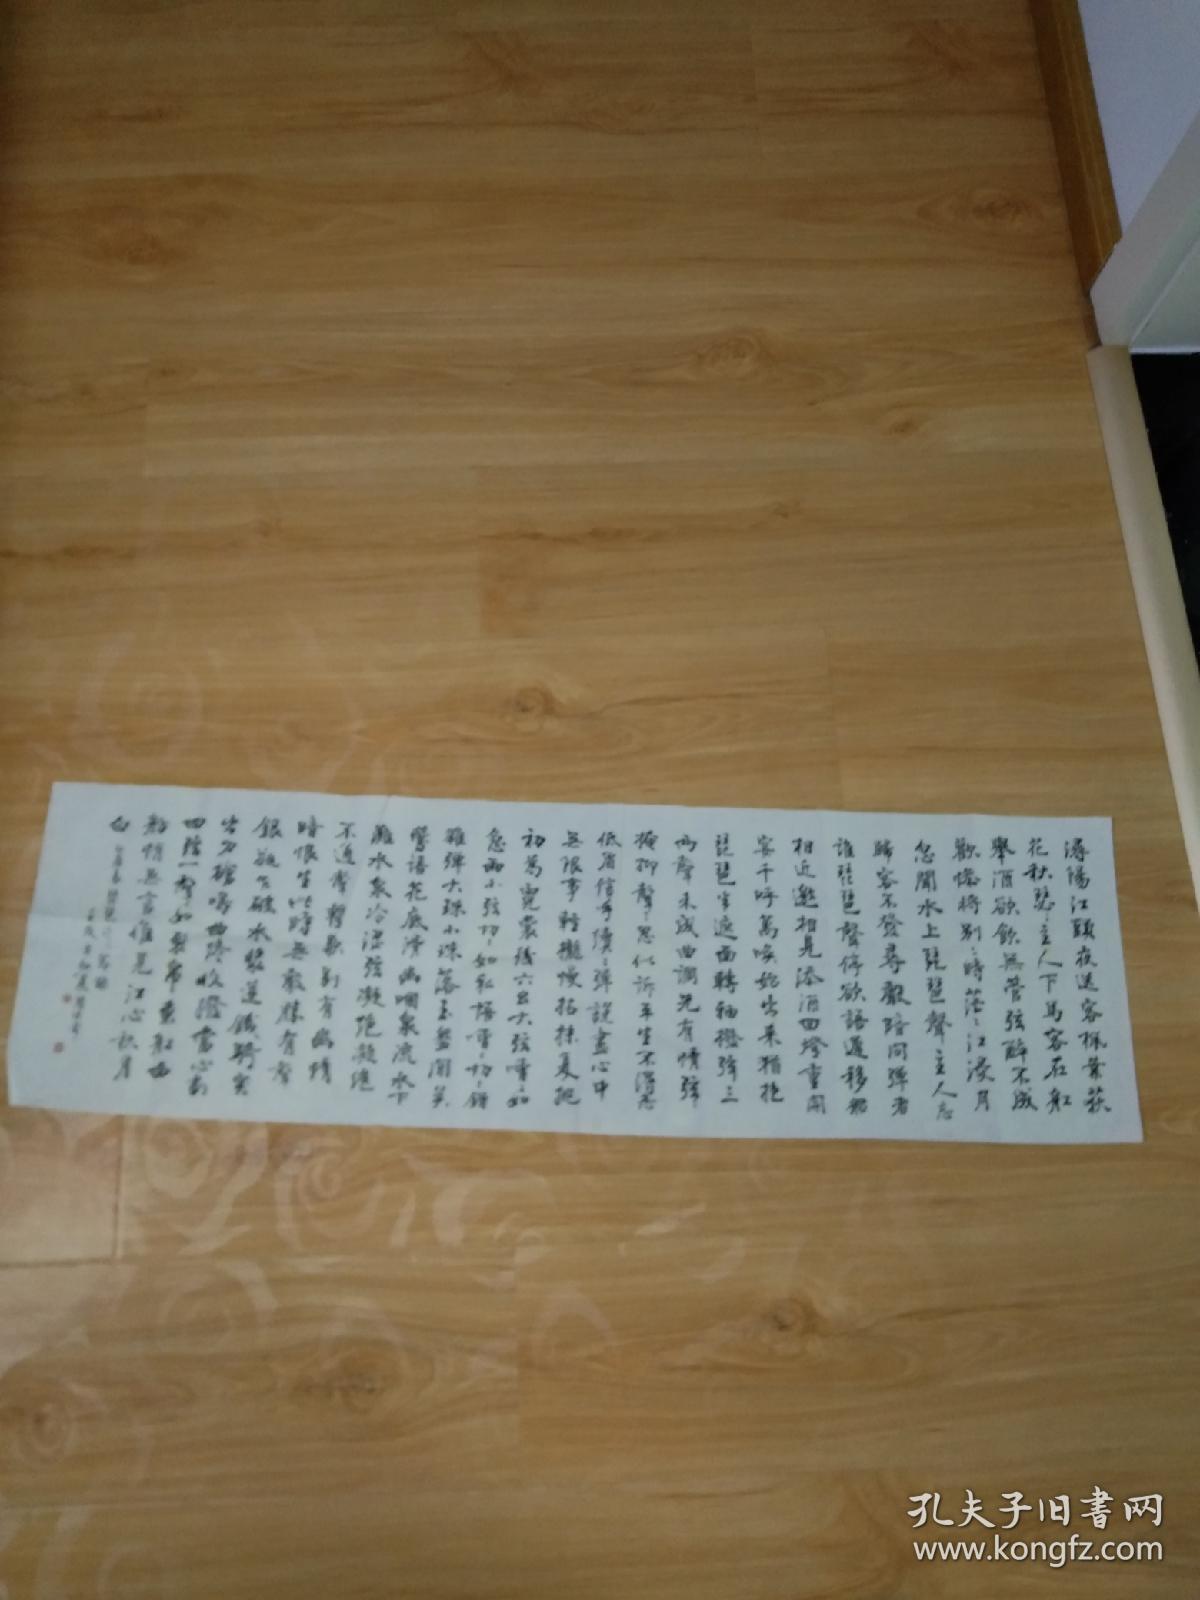 潯陽江頭夜送客楓葉荻
花秋瑟〻主人下馬客在船
舉酒欲飲無管弦醉不成
歡慘將別〻時茫〻江浸月
忽聞水上琵琶聲主人忘
歸客不發尋聲暗問彈者
誰琵琶聲停欲語遲移船
相近邀相見添酒回燈重開
宴千呼萬喚始出來猶抱
琵琶半遮面轉軸撥弦三
兩聲未成曲調先有情弦〻
掩抑聲〻思似訴平生不得志
低眉信手續〻彈說盡心中
無限事輕攏慢撚抹復挑
初為霓裳後六幺大弦嘈〻如
急雨小弦切〻如私語嘈〻切〻錯
雜彈大珠小珠落玉盤間關
鶯語花底滑幽咽泉流水下
灘水泉冷澀弦凝絕凝絕
不通聲暫歇別有幽情
暗恨生此時無聲勝有聲
銀瓶乍破水漿迸鐵騎突
出刀槍鳴曲終收撥當心畫
四弦一聲如裂帛東船西
舫悄無言唯見江心秋月
白
孔夫子旧书网
www.kongfz.com